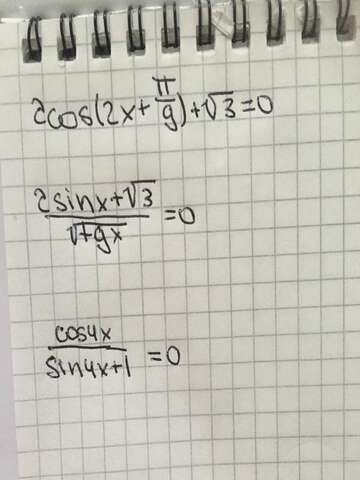 2cos(2x+π/9)+√3=0
2sinx+√3/√tgx=0
cos4x/sin4x+1=0